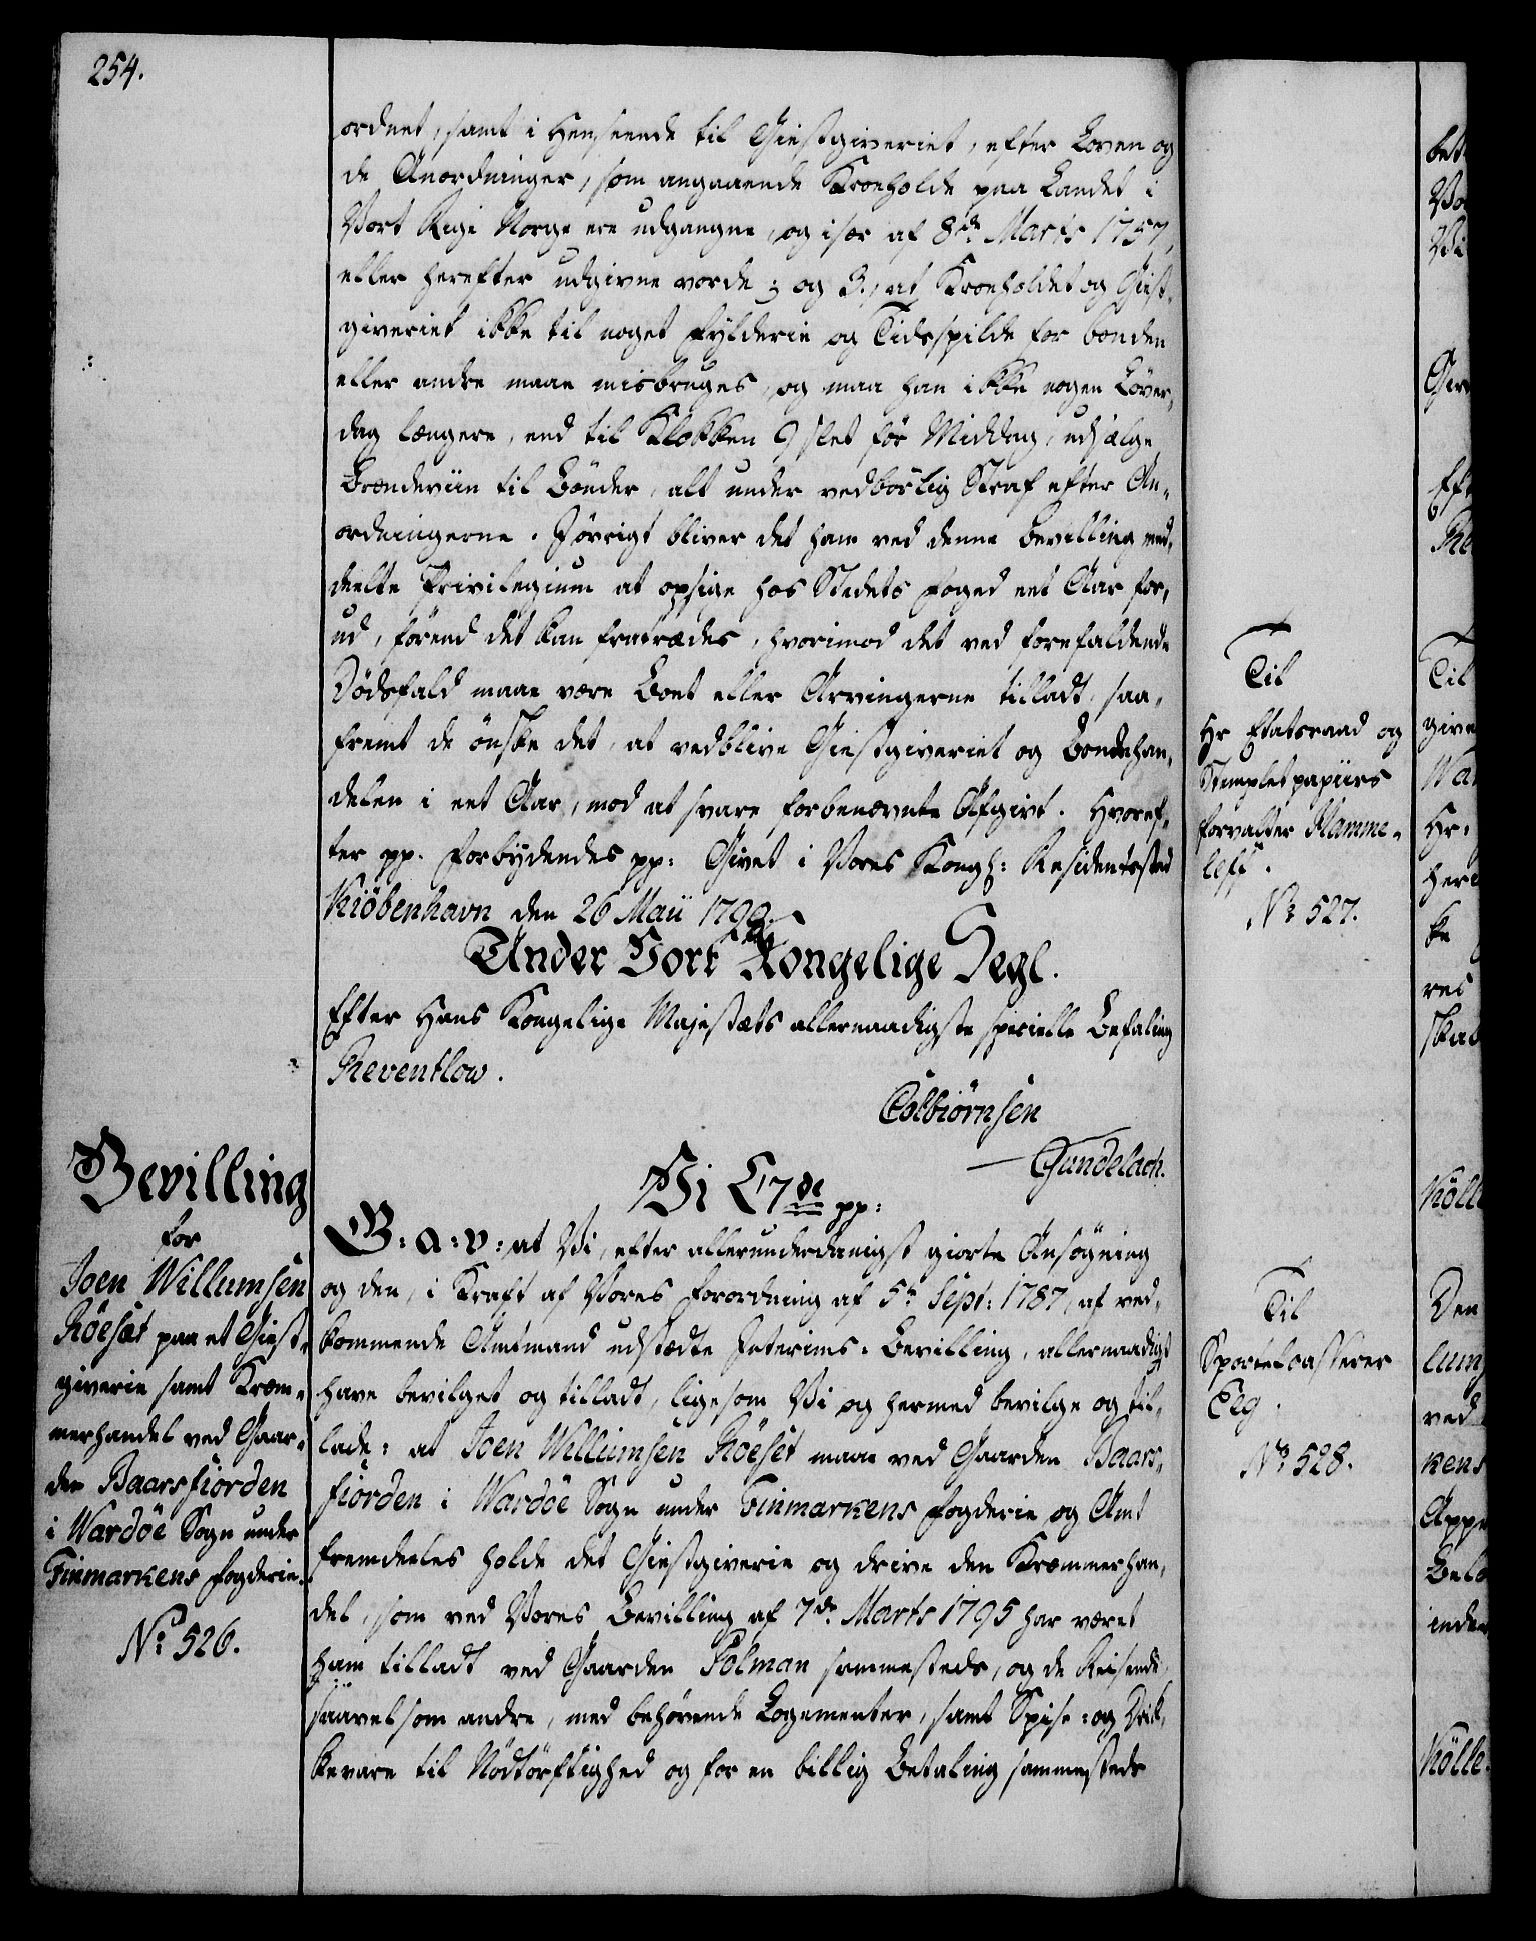 254.
ordnet, samt i Henseende til Giestgiveriet, efter Loven og
de Anordninger, som angaaende Kroeholde paa Landet i
Vort Rige Norge ere udgangne, og især af 8de Marts 1757,
eller herefter udgivne vorde; og 3., at Kroeholdet og Giest-
giveriet ikke til noget Fylderie og Tidsspilde for bonden
eller andre maae misbruges, og maa han ikke nogen Löver-
dag længere, end til Klokken 9 slet för Middag, udsælge
Brændeviin til Bönder, alt under vedbörlig Straf efter An-
ordningerne. Iövrigt bliver det ham ved denne Bevilling med-
deelte Privilegium at opsige hos Stedets Foged eet Aar for-
ud, förend det kan fratrædes, hvorimod det ved forefaldende
Dödsfald maae være Boet eller Arvingerne tilladt, saa-
fremt de önske det, at vedblive Giestgiveriet og Bondehan-
delen i eet Aar, mod at svare forbenævnte Afgivt. Hvoref-
ter pp. Forbydendes pp: Givet i Vores Kongl: Residentsstad
Kiöbenhavn den 26 Maii 1799.
Under Vort Kongelige Segl.
Efter Hans Kongelige Majestæts allernaadigste specielle Befaling
Reventlow.
Colbiörnsen
Gundelach.
Bevilling
for
Joen Willumsen
Röeset paa et Giest-
giverie samt Kræm-
merhandel ved Gaar-
den Baarsfiorden
i Wardöe Sogn under
Finmarkens Fogderie.
No 526.
Vi C7de pp:
G: A: V: at Vi, efter allerunderdanigst giorte Ansögning
og den, i Kraft af Vores Forordning af 5te Sept: 1787, af ved-
kommende Amtmand udstædte Interims-Bevilling, allernaadigst
have bevilget og tilladt, ligesom Vi og hermed bevilge og til-
lade: at Joen Willumsen Röeset maae ved Gaarden Baars-
fiorden i Wardöe Sogn under Finmarkens Fogderie og Amt
fremdeeles holde det Giestgiverie og drive den Kræmmerhan-
del, som ved Vores Bevilling af 7de Marts 1795 har været
ham tilladt ved Gaarden Polman sammesteds, og de Reisende,
saavelsom andre, med behövende Logementer, samt Spise- og Drik-
kevare til Nödtörftighed og for en billig Betaling sammesteds
Til
Hr Etatsraad og
Stempletpapiirs
forvalter Klamme-
leff.
No 527.
Til
Sportelcasserer
No 528.
Til
give
Hr:
ke
res
skab
Den
lum
ved
kens
Appe